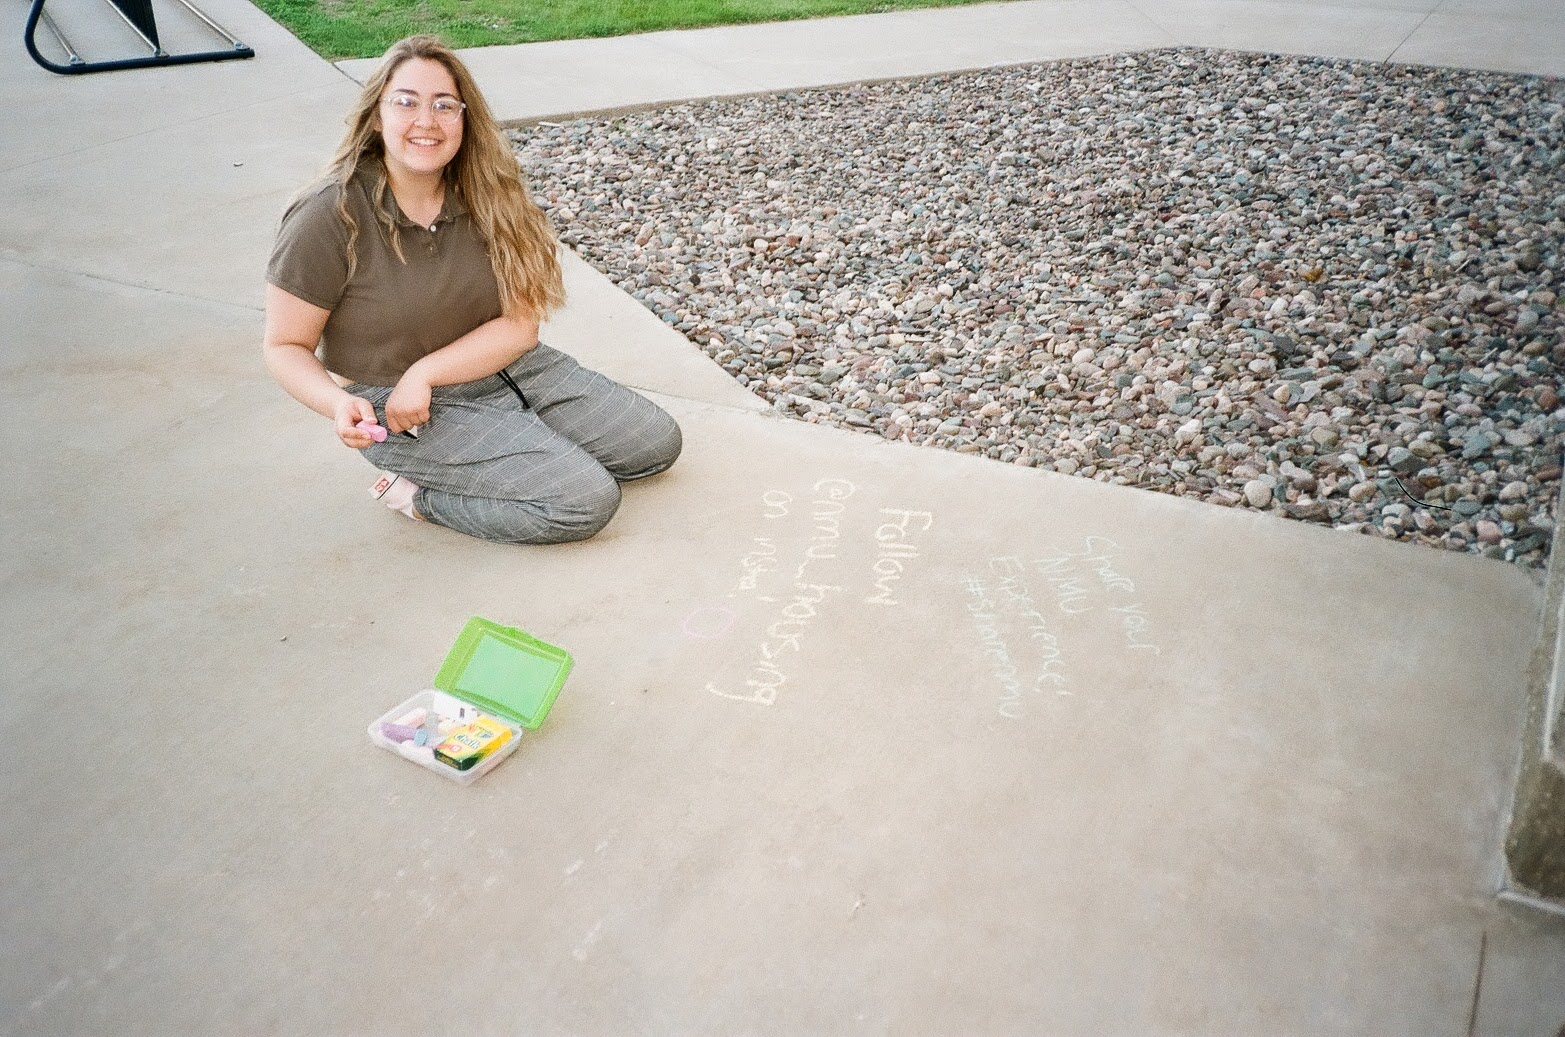 Share your
NMU
Experience,
#sharenmu
Follow
@nmu_housing
on insta!
Crayola
Chalk